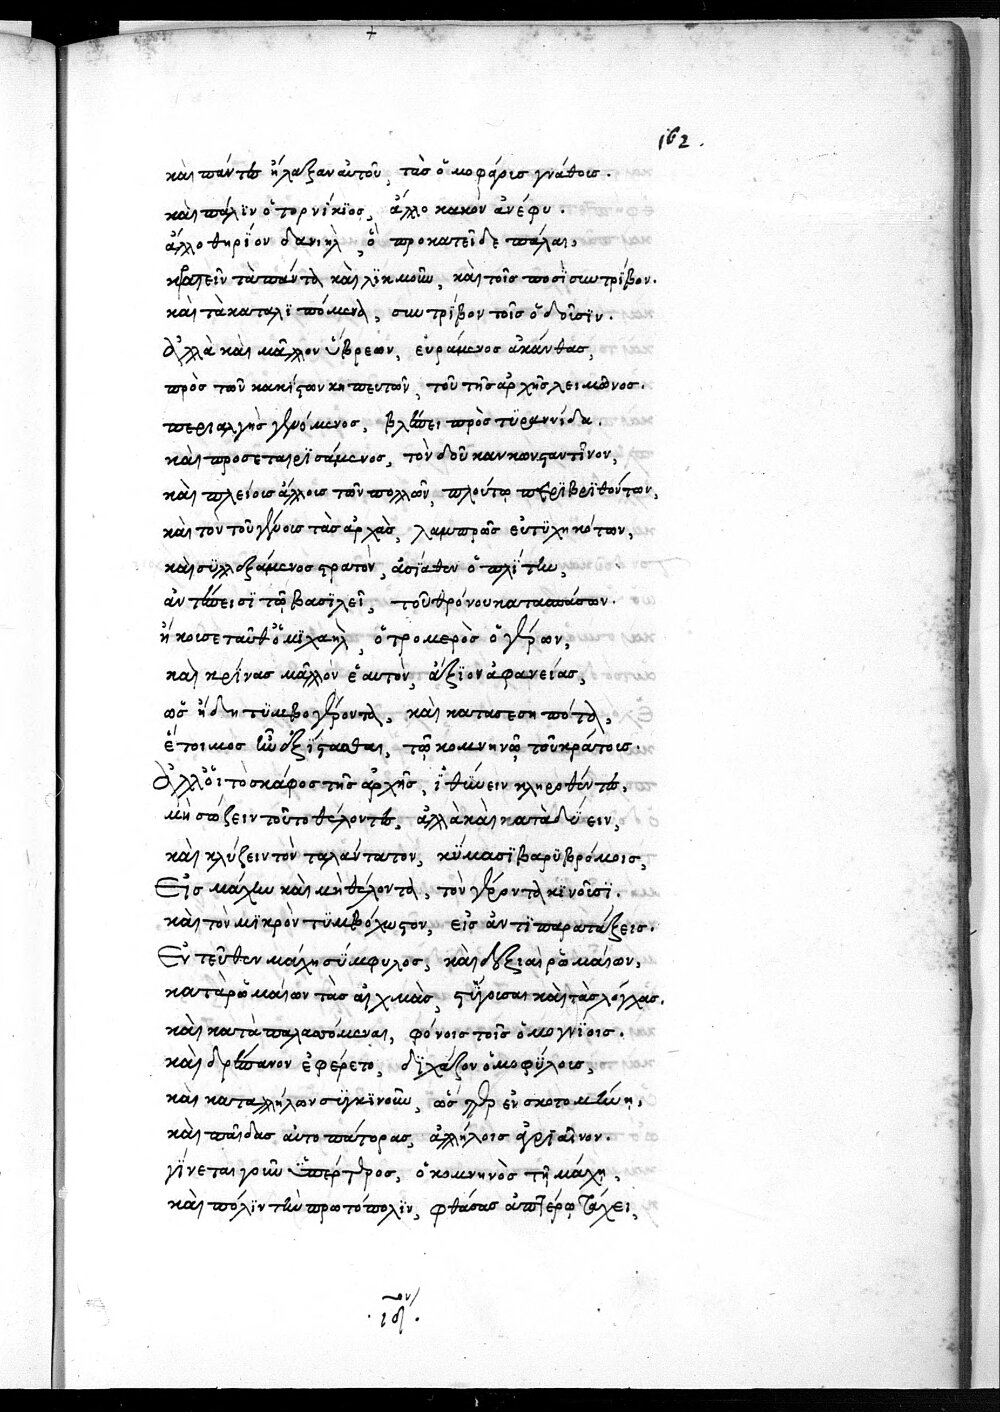 162.
καὶ πάντες ἤλαξαν αὐτοῦ, τὰσ ὁμοφάρισ γνάθοισ.
καὶ πάλϊν ὁ τορνίκϊοσ, ἄλλο κακὸν ἀνέφυ.
ἄλλο θηρΐον δανιὴλ, ὃ προκατεῖδε πάλαι,
τὰ πάντα καὶ λϊκμοῦν, καὶ τοῖσ ποσῒ συντρΐβον.
καὶ τὰ καταλϊπόμενα, συντρΐβον τοῖσ ὀδοῦσϊν.
Ἀλλὰ καὶ μᾶλλον ὕβρεων, εὑράμενοσ ἀκάνθασ,
πρὸσ τῶν κακίστων κηπευτῶν, τοῦ τῆσ ἀρχῆσ λειμῶνοσ.
περιαλγὴσ γενόμενοσ, βλέπει πρὸσ τϋραννίδα.
καὶ προσεταιρϊσάμενοσ, τὸν δοῦκαν κωνσταντῖνον,
καὶ πλείοισ ἄλλοισ τῶν πολλῶν, πλούτῳ περϊβρϊθούντων,
καὶ τὸν τοῦ γένουσ τὰσ ἀρχὰσ, λαμπρῶσ εὐτϋχηκότων,
καὶ συλλεξάμενοσ στρατὸν, ἀσίαθεν ὁπλΐτην,
ἀντέπεισϊ τῷ βασϊλεῖ, τοῦ θρόνου κατασπάσων.
ἤκουσε ταῦθ' ὁ μϊχαὴλ, ὁ τρομερὸσ ὁ γέρων,
καὶ κρΐνασ μᾶλλον ἑαυτὸν, ἄξϊον ἀφανείασ,
ὡσ ἤδη τϋμβογέροντα, καὶ κατασεσηπότα,
ἕτοιμοσ ἦν ἐξίστασθαι, τῷ κομνηνῷ τοῦ κράτουσ.
Ἀλλ' οἱ τὸ σκάφοσ τῆσ ἀρχῆσ, ἰθύνειν κληρωθέντεσ,
μὴ σώζειν τοῦτο θέλοντεσ, ἀλλὰ καὶ καταδύειν,
καὶ κλύζειν τὸν ταλάντατον, κύμασϊ βαρϋβρόμοισ,
Εἰσ μάχην καὶ μὴ θέλοντα, τὸν γέροντα κϊνοῦσϊ.
καὶ τὸν μϊκρὸν τϋμβόχωστον, εἰσ ἀντϊπαρατάξεισ.
Ἐντεῦθεν μάχη σύμφυλοσ, καὶ δεξιαὶ ῥωμαίων,
κατὰ ῥωμαίων τὰσ αἰχμὰσ, στΐγουσαι καὶ τὰσ λόγχασ.
καὶ καταπαλασσόμεναι, φόνοισ τοῖσ ὁμογνΐοισ.
καὶ δρέπανον ἐφέρετο, δϊχάζον ὁμοφύλουσ,
καὶ κατ' ἀλλήλων συγκϊνοῦν, ὡσ ἐν σκοτομήνῃ,
καὶ παῖδασ αὐτοπάτορασ, ἀλλήλοισ ἀγριαῖνον.
γΐνεται γοῦν ὑπέρτεροσ, ὁ κομνηνὸσ τῇ μάχῃ,
καὶ πόλϊν τὴν πρωτόπολϊν, φθάσασ ὑποπτέρῳ τάχει,